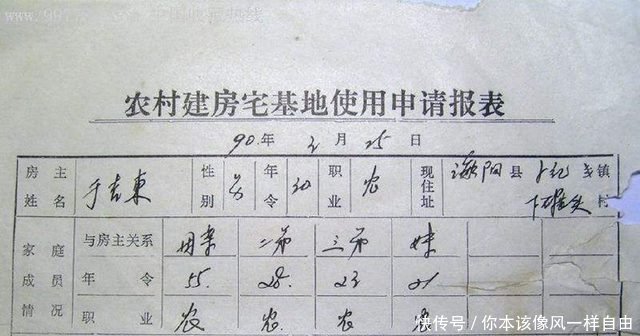 农村建房宅基地使用申请报表
90年 2月 25日
房主姓名 于吉東 性别 男 年令 30 职业 农 现住址 濮阳县 镇 村
家庭成员情况
与房主关系 母亲 二弟 三弟 妹
年令 55. 28. 23 21
职业 农 农. 农 农
快传号/你本该像风一样自由